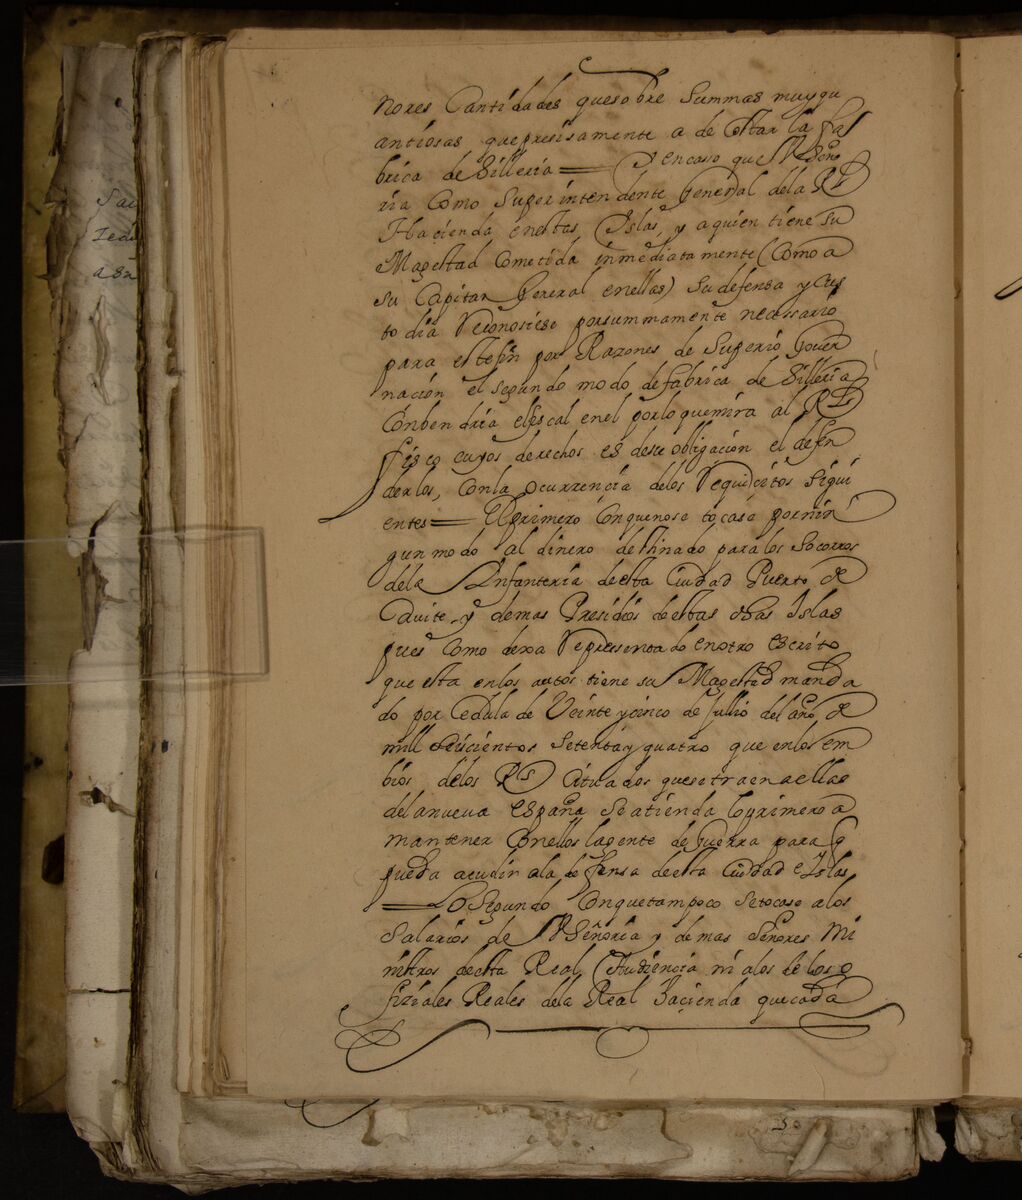 nores Cantidades que sobre Summas muy qu
antiosas que presisamente a de costar la fa
brica de Silleria = Y en casso que V Seño
ria Como Superintendente General dela Rl
Hacienda en estas Yslas, y aquien tiene su
Magestad Cometida inmediatamente (Como a
su Capitan General en ellas) su defensa y Cus
todia Reconosiese por summamente necessario
para este fin por Razones de Superio Gover
nacion el segundo modo de fabrica de Silleria
Conbendria el fiscal en el por lo que mira al Rl
fisco cuyos derechos es de su obligacion el defen
derlos, con la ocurrencia delos Requicitos Sigui
entes = El primero Con que no se tocase por nin
gun modo al dinero destinado para los Socorros
dela Ynfanteria de esta Ciudad Puerto de
Cavite, y demas Presidios de estas dhas Islas
pues Como dexa Representado en otro escrito
que esta en los autos tiene su Magestad manda
do por Cedula de Veinte y cinco de Jullio del año de
mill seiscientos setenta y quatro que en los em
bios de los Rs cituados que se traen a ellas
de la nueva España se atienda lo primero a
mantener Con ellos la gente de Guerra para q
pueda acudir a la defensa de esta Ciudad e Islas
= Lo Segundo Con que tampoco se tocase a los
Salarios de V Señoria y demas señores Mi
nistros de esta Real Audiencia ni a los de los o
fiziales Reales de la Real Hacienda que cada
Sai
a sn
3